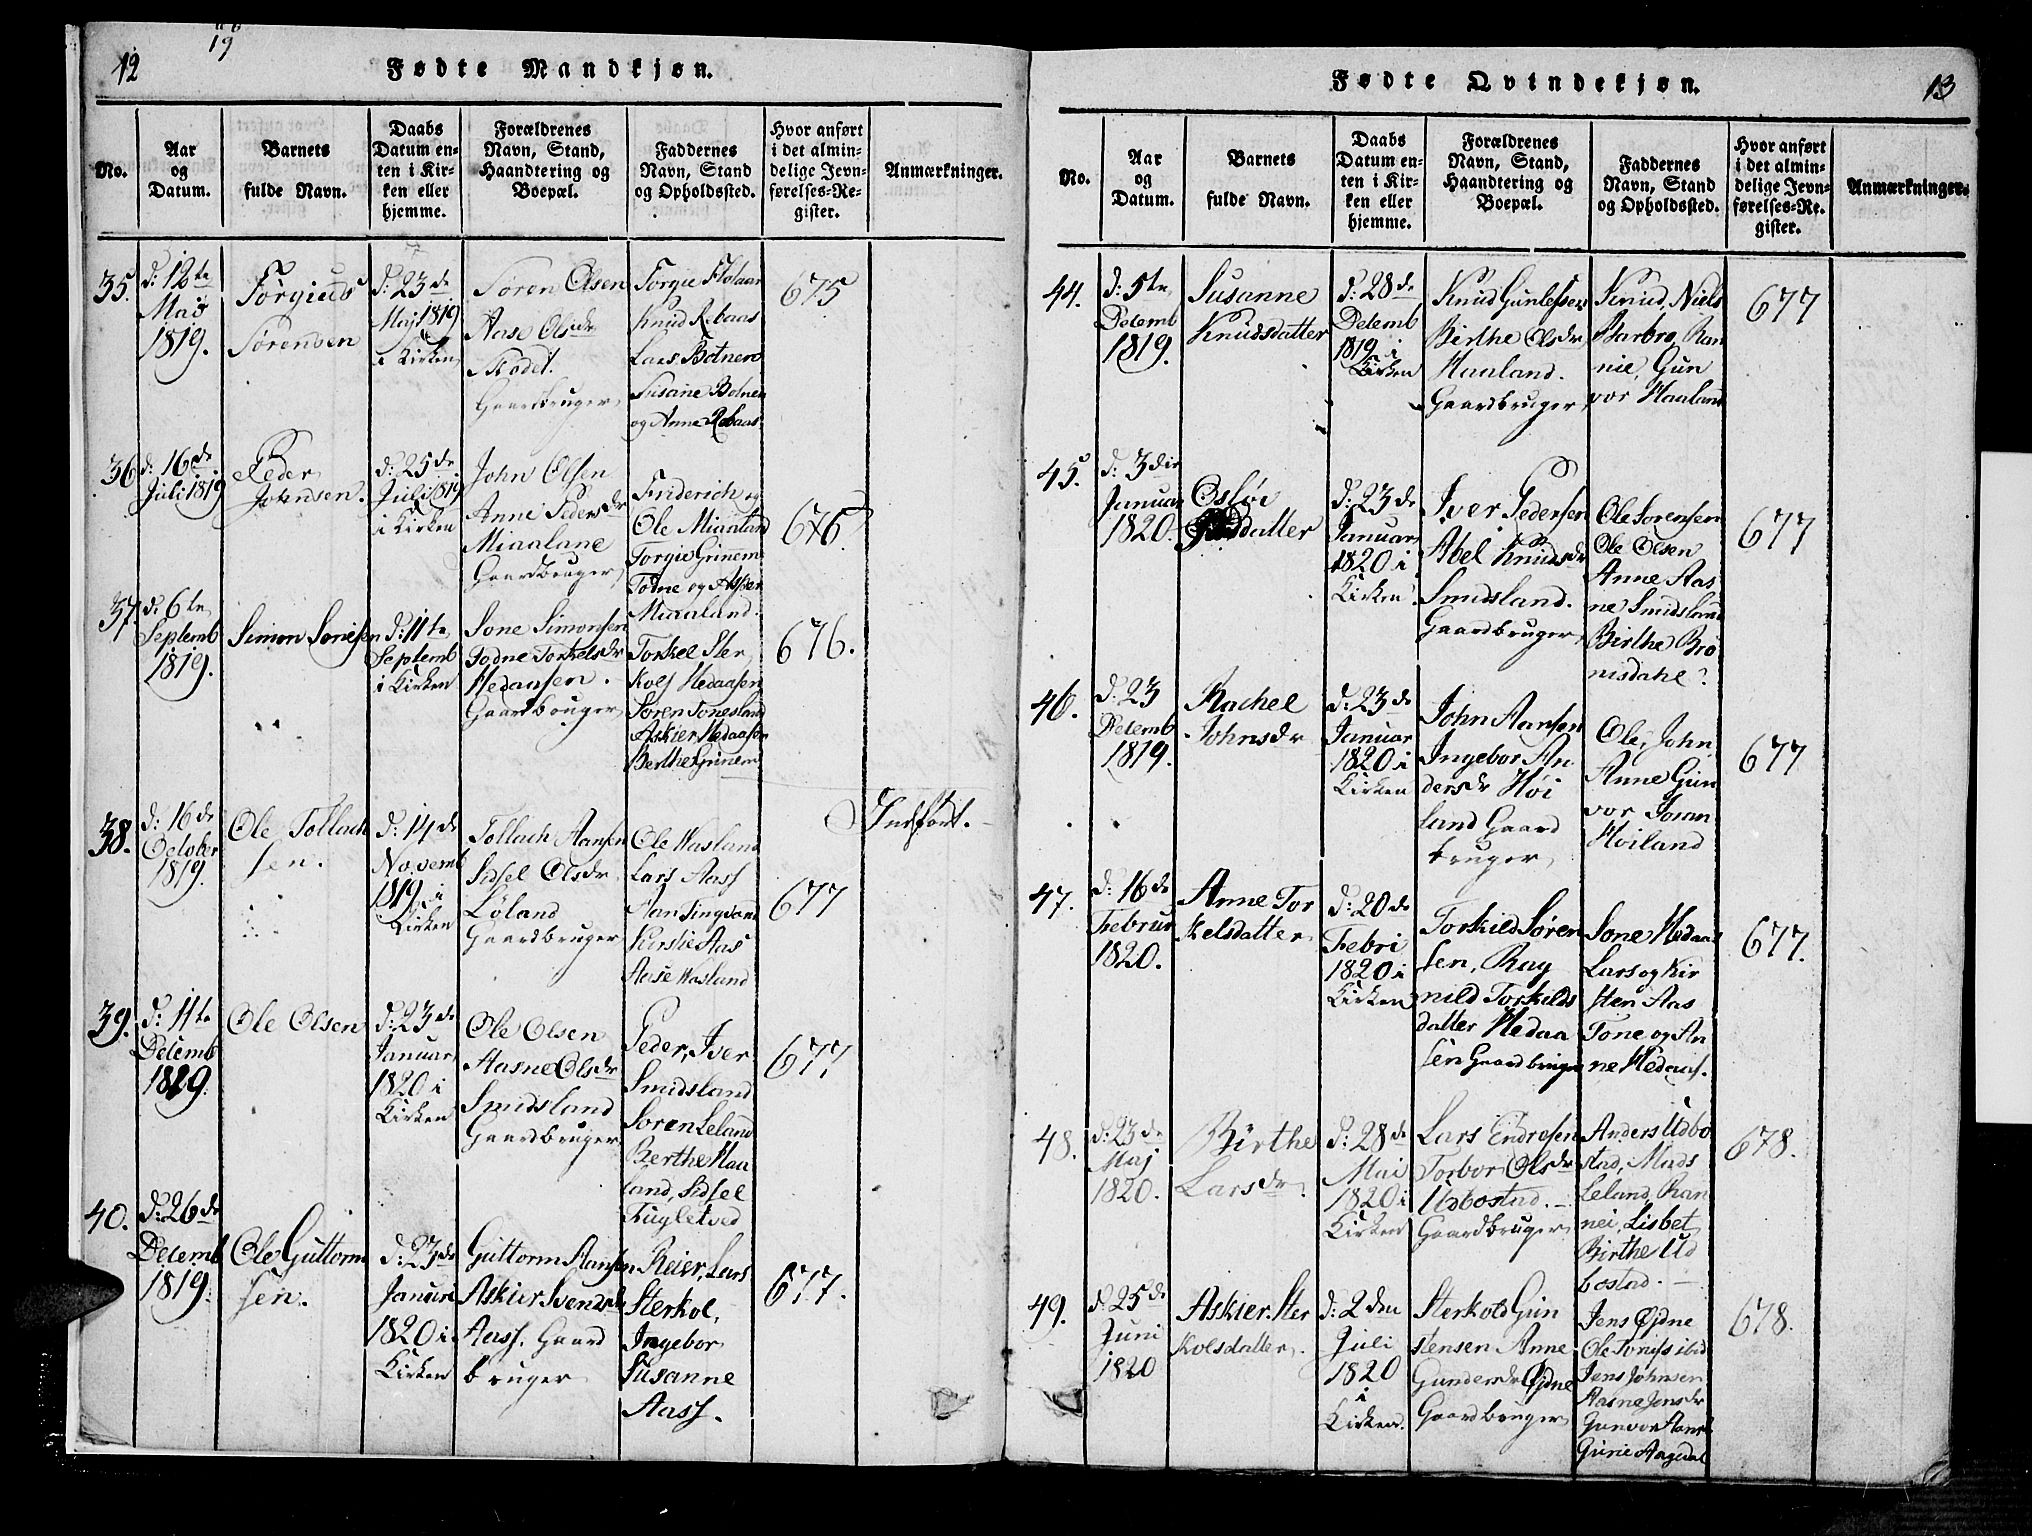 12
19
Fødte Mandkjøn.
No.
Aar
og
Datum.
Barnets
fulde Navn.
Daabs
Datum en-
ten i Kir-
ken eller
hjemme.
Forældrenes
Navn, Stand,
Haandtering og
Boepæl.
Faddernes
Navn, Stand
og Opholdssted.
Hvor anført
i det almin-
delige Jevn-
førelses-Re-
gister.
Anmærkninger.
35.
d: 12te
1819.
Sörensen
d: 23de
Maj 1819
i Kirken
Sören Olsen
Aase Olsdr
Gaardbruger
Knud Rebaas
Lars Botnen
Susane Botnen
og Anne Rebaas
675
36
d: 16de
Juli 1819
Peder
Johnsen.
d: 25de
Juli 1819
i Kirken
John Olsen
Anne Pedersdr
Gaardbruger
Friderich og
Ole Miaaland
Torgie Grinem
Todne og Assier
Miaaland.
676.
37
d: 6te
Septemb
1819.
Simon Sonesen
d: 11te
Septemb
i Kirken
Sone Simonsen
Todne Torkelsdr
Hedaasen.
Gaardbruger
Torkel Ster
kols Hedaasen
Sören Tonesland
Askier Hedaasen
Berthe Grinem
676.
38.
d: 16de
October
1819.
Ole Tollach
sen.
d: 14de
Novemb
1819 i
Kirken
Tollach Aansen
Sidsel Olsdr
Löland
Gaardbruger
Ole Wasland
Lars Aass
Aan Lingvand
Kirstie Aas
Aase Wasland
677
Indfört.
39.
d: 11te
Decemb
1819.
Ole Olsen
d: 23de
Januar
1820 i
Kirken
Ole Olsen
Aasne Olsdr
Smidsland
Gaardbruger
Peder, Iver
Smidsland
Soren Leland
Berthe Haa
land, Sidsel
Fugletved
677
40.
d: 26de
Decemb
1819.
Ole Guttorm
sen.
d: 23de
Januari
1820 i
Kirken
Guttorm Aansen
Askier Svendsdr
Aass. Gaard
bruger
Reier, Lars
Sterkol,
Ingebor
Susanne
Aass.
677.
Fødte Qvindekjøn.
13
No.
Aar
og
Datum.
Barnets
fulde Navn.
Daabs
Datum en-
ten i Kir-
ken eller
hjemme.
Forældrenes
Navn, Stand,
Haandtering og
Boepæl.
Faddernes
Navn, Stand
og Opholdssted.
Hvor anført
i det almin-
delige Jevn-
førelses-Re-
gister.
Anmærkninger.
44.
d: 5te
Decemb
1819.
Susanne
Knudsdatter
d: 28de
Decemb
1819 i
Kirken
Knud Gunlefsen
Birthe Olsdr
Haaland.
Gaardbruger
Knud, Niels
Barbro, Ran
nie, Gun
vor Haaland
677
45.
d: 3die
Januar
1820.
Oslöv
d: 23de
Januar
1820 i
Kirken
Iver Pedersen
Abel Knudsdr
Smidsland.
Gaardbruger
Ole Sorensen
Ole Olsen
Anne Aas
ne Smidsland
Birthe Bro
nisdahl.
677
46.
d: 23
Decemb
1819.
Rachel
Johnsdr
d: 23de
Januar
1820 i
Kirken
John Aansen
Ingebor An
dersdr Höi
land Gaard
bruger
Ole, John
Anne Gun
vor Joran
Höiland
677
47.
d: 16de
Februar
1820.
Anne Tor
kelsdatter
d: 20de
Febri
1820 i
Kirken
Torkild Sören
sen, Rag
nild Torkilds
datter Hedaa
sen Gaardbruger
Sone Hedaas
Lars og Kir
sten Aas
Tone og An
ne Hedaas.
677.
48.
d: 23de
Maj
1820.
Birthe
Larsdr.
d: 28de
Mai
1820 i
Kirken
Lars Endresen
Torbor Olsdr
Udbostad.
Gaardbruger
Anders Udbo
stad, Mads
Leland, Ran
nei, Lisbet
Birthe Ud
bostad.
678.
49.
d: 25de
Juni
1820
Askier Ster
kolsdatter.
d: 2den
Juli
1820
i
Kirken.
Sterkold Gun
stensen Anne
Gundersdr Øjdne
Gaardbruger
Jens Øjdne
Ole Tonisf ibid
Jens Johnsen
Aasne Jensdr
Gunvor Aanes
Gurie Aagedal
678.